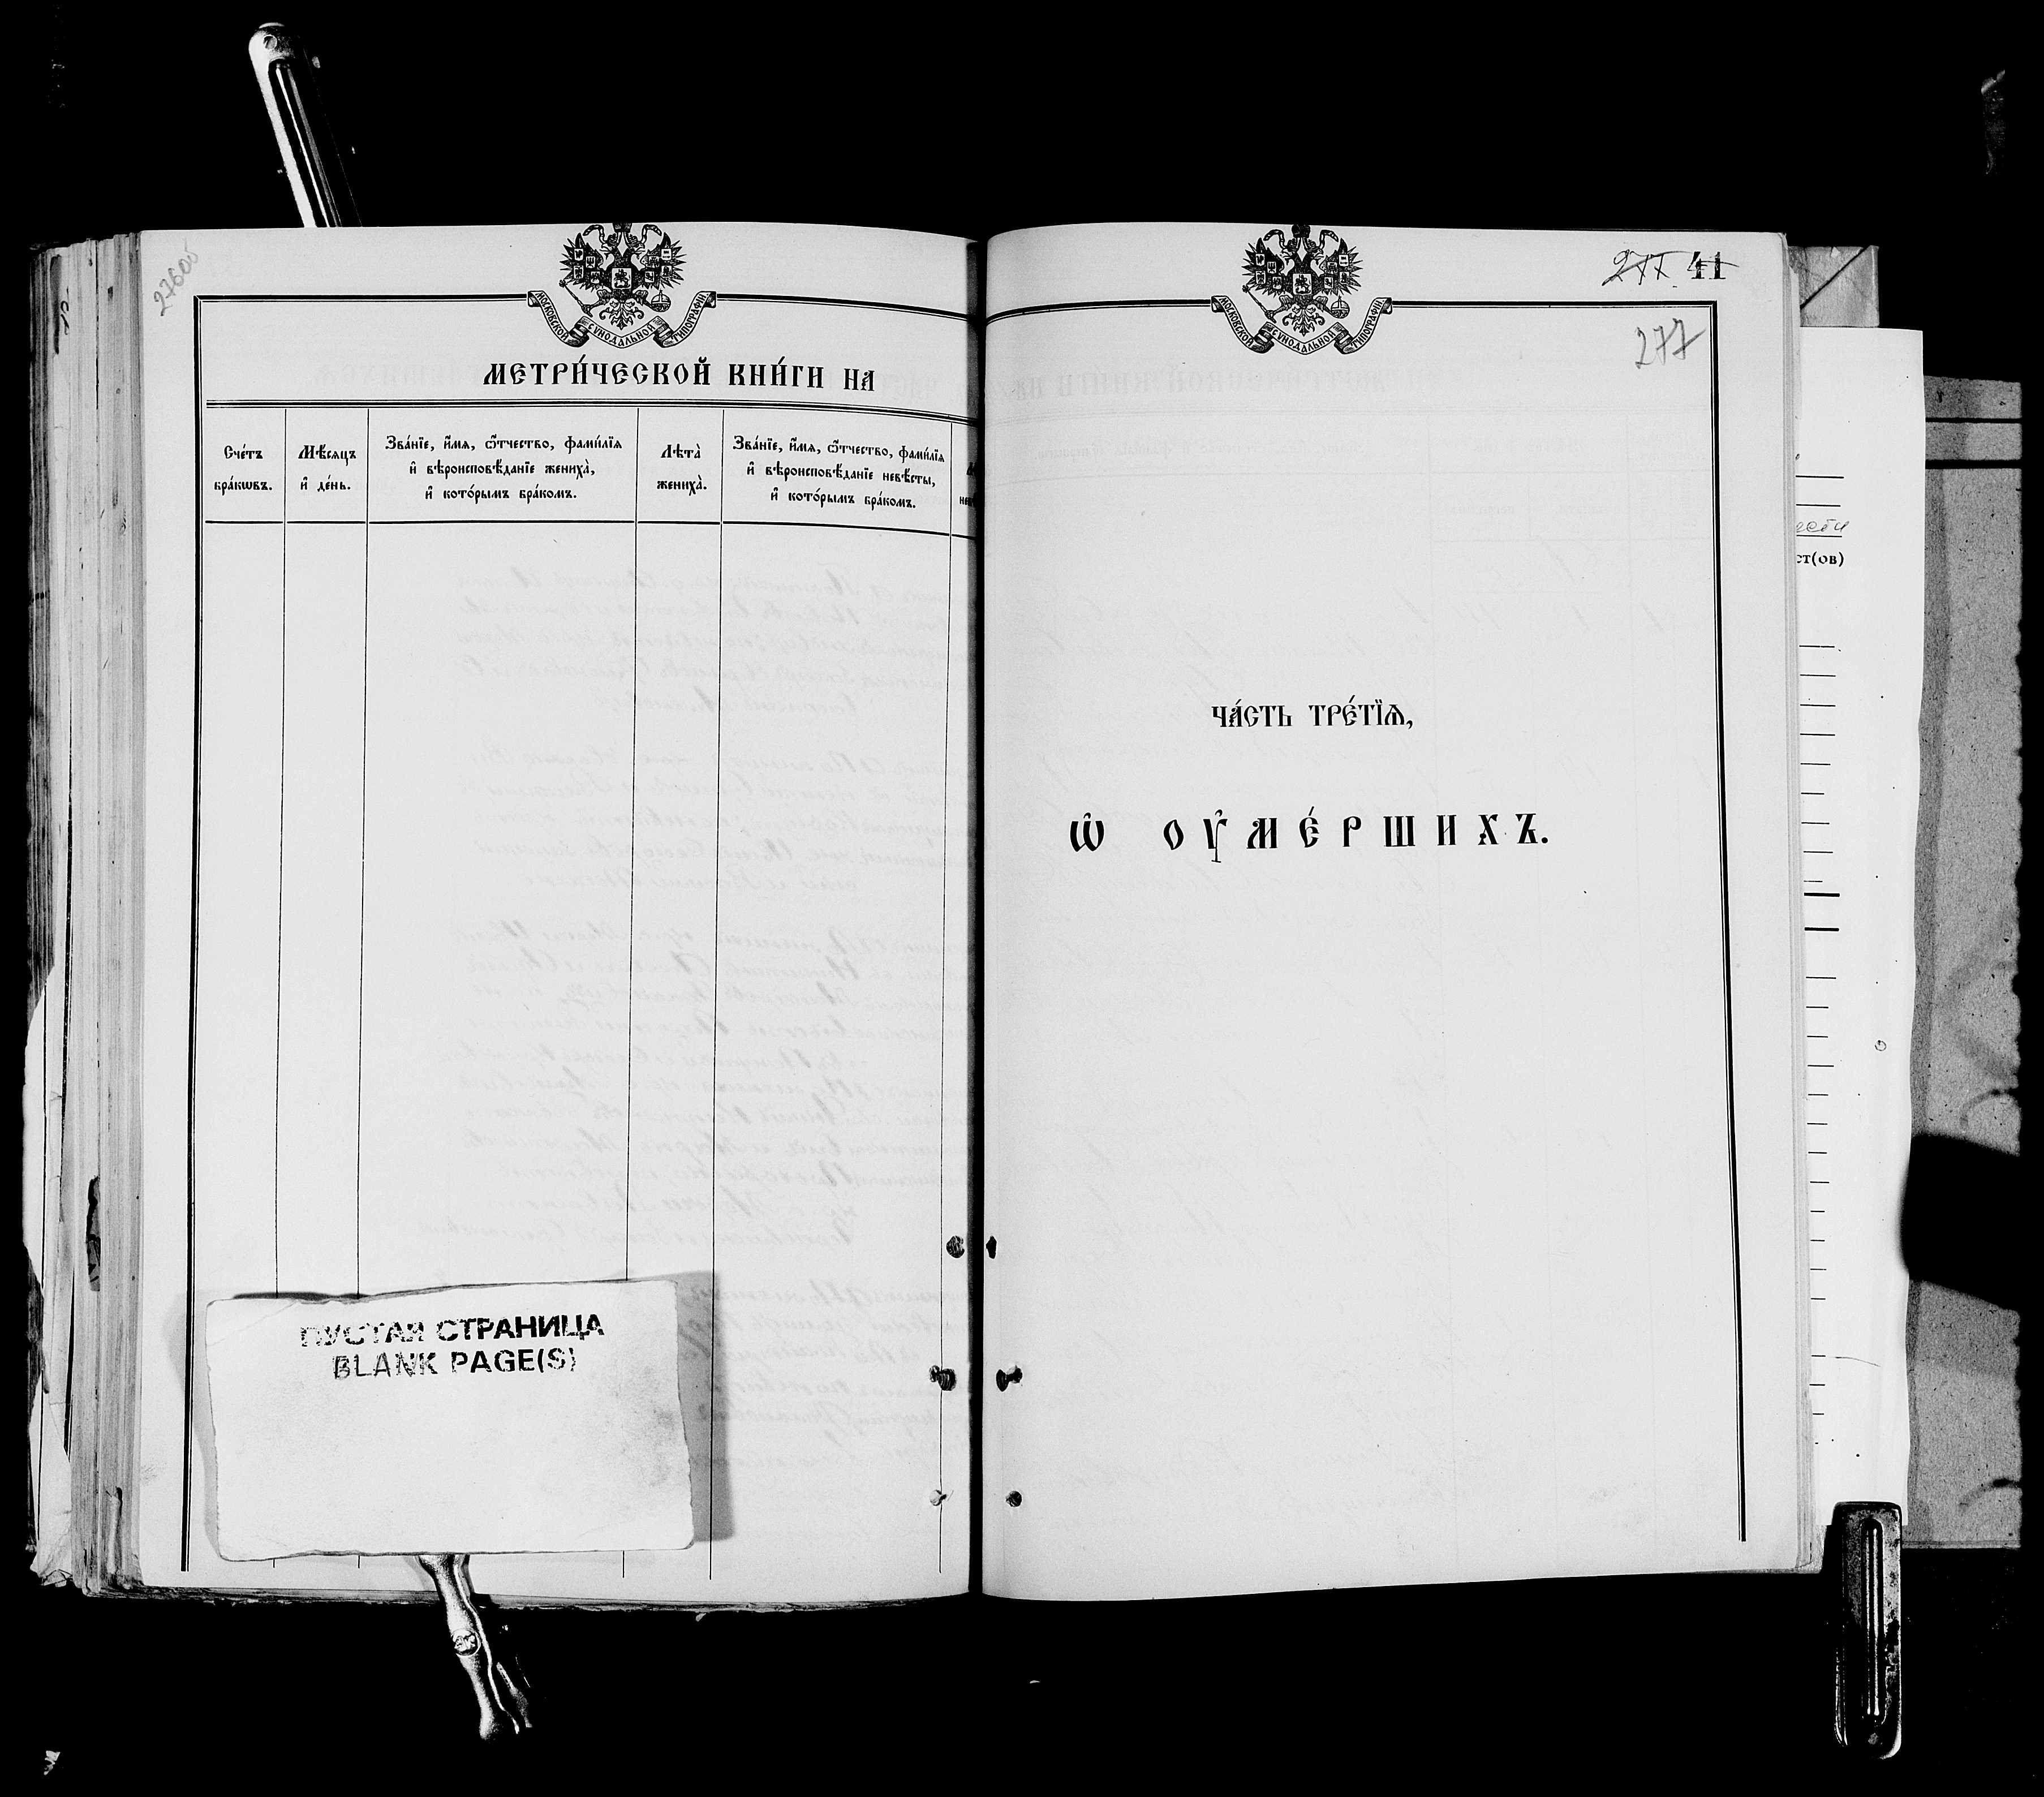 276об
МОСКОВСКОЙ СѴНОДАЛЬНОЙ ТИПОГРАФІИ
МЕТРИ́ЧЕСКОЙ КНИ́ГИ НА
Сче́тъ бра́кѡвъ.
Мѣ́сяцъ и҆ де́нь.
Зва́нїе, и҆́мѧ, ѻ҆́тчество, фами́лїѧ
и҆ вѣроисповѣ́данїе жениха̀,
и҆ кото́рымъ бра́комъ.
Лѣта̀ жениха̀.
Зва́нїе, и҆́мѧ, ѻ҆́тчество, фами́лїѧ
и҆ вѣроисповѣ́данїе невѣ́сты,
и҆ кото́рымъ бра́комъ.
ПУСТАЯ СТРАНИЦА
BLANK PAGE(S)
МОСКОВСКОЙ СѴНОДАЛЬНОЙ ТИПОГРАФІИ
277. 41
277
ЧА́СТЬ ТРЕ́ТЇѦ,
Ѡ҆ ОУ҆МЕ́РШИХЪ.
ст(ов)